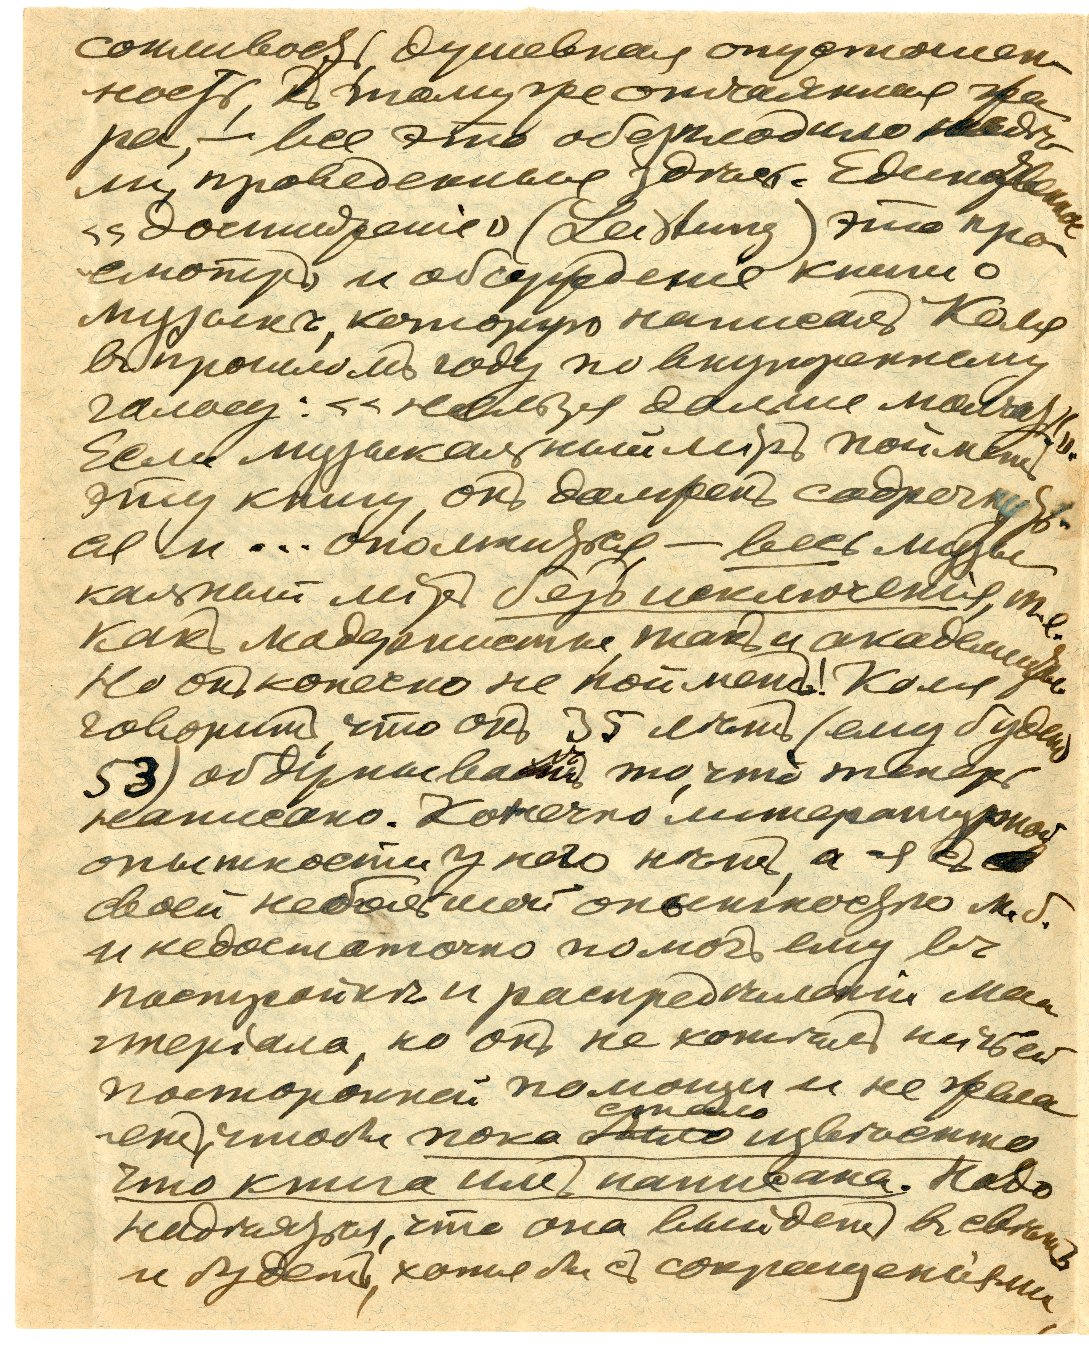 сонливость, душевная опустошен-
ность, къ тому же отчаянная жа-
ра, — все это обезплодило недѣ-
ли, проведенныя здѣсь. Единственное
«достиженiе» (Leistung) это про-
смотръ и обсужденiе книги о
музыкѣ, которую написалъ Коля
въ прошломъ году по внутреннему
голосу: «нельзя дальше молчать».
Если музыкальный мiръ пойметъ
эту книгу, онъ долженъ содрогнуть-
ся и ... ополчиться, — весь музы-
кальный мiръ безъ исключенiя, т.е.
какъ модернисты, такъ и академисты.
Но онъ конечно не пойметъ! Коля
говоритъ, что онъ 35 лѣтъ (ему будетъ
53) то, что теперь
написано. Конечно литературной
опытности у него нѣтъ, а я съ
своей небольшой опытностью м.б.
и недостаточно помогъ ему въ
постройкѣ и распредѣленiи ма-
терiала, но онъ не хотѣлъ ничьей
посторонней помощи и не жела-
етъ, чтобы пока стало извѣстно
что книга имъ написана. Надо
надѣяться, что она выйдетъ въ свѣтъ
и будетъ, хотя бы съ сокращенiями,